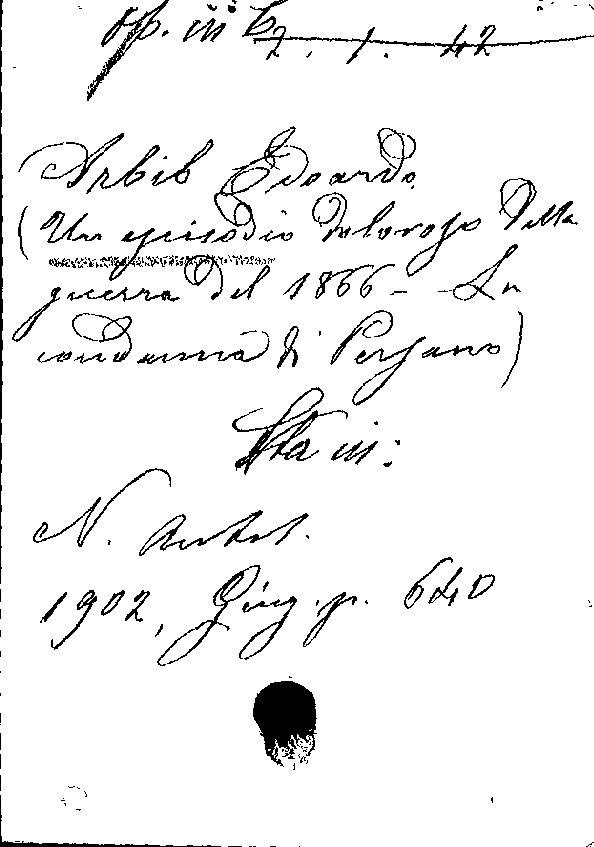 Op. in b 2. 1. 42
Arbib Edoardo
(Un episodio doloroso della
guerra del 1866 - La
condanna di Persano)
Sta in:
N. Antol.
1902, Giug. p. 640